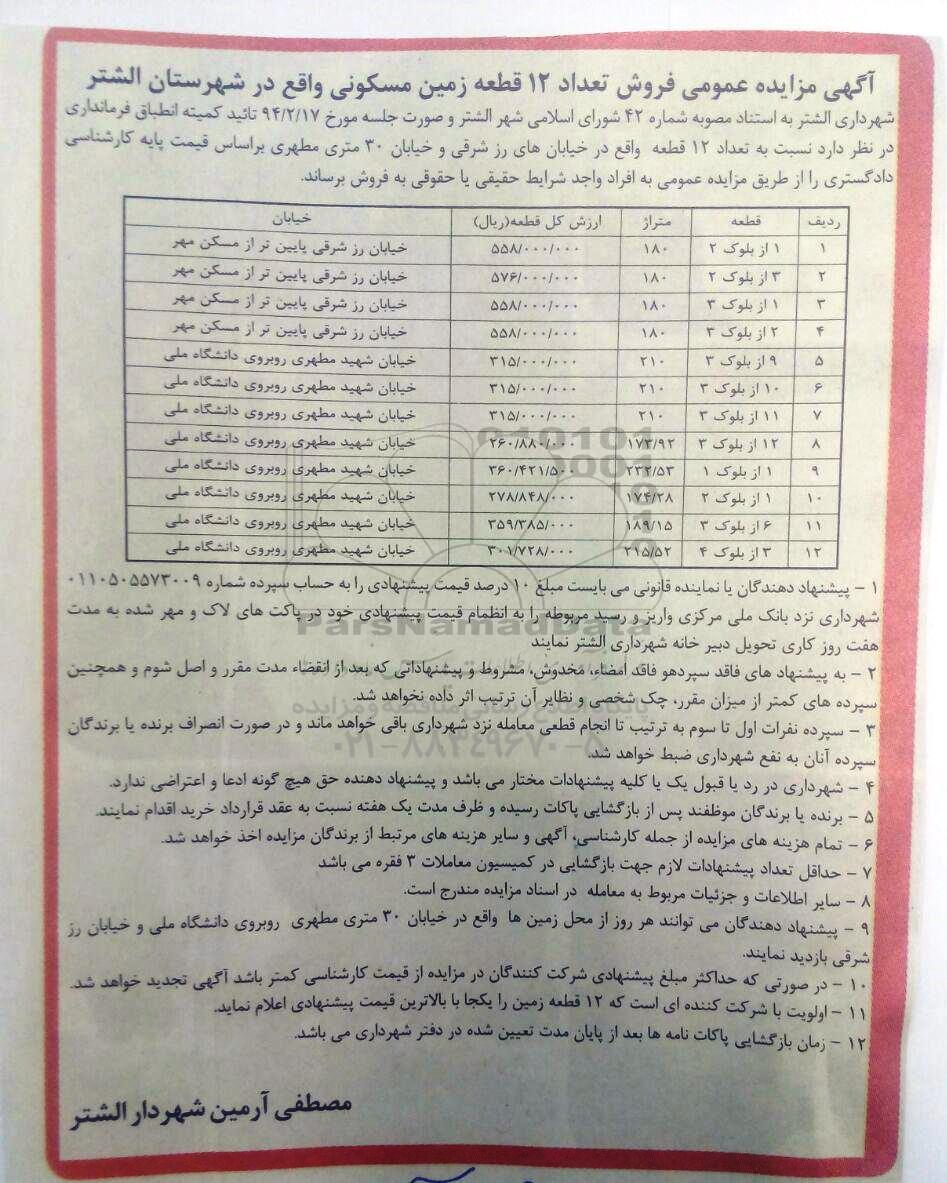 آگهی مزایده عمومی فروش تعداد ۱۲ قطعه زمین مسکونی واقع در شهرستان الشتر
شهرداری الشتر به استناد مصوبه شماره ۴۲ شورای اسلامی شهر الشتر و صورت جلسه مورخ ۹۴/۲/۱۷ تائید کمیته انطباق فرمانداری
در نظر دارد نسبت به تعداد ۱۲ قطعه واقع در خیابان های رز شرقی و خیابان ۳۰ متری مطهری براساس قیمت پایه کارشناسی
دادگستری را از طریق مزایده عمومی به افراد واجد شرایط حقیقی یا حقوقی به فروش برساند.
ردیف قطعه متراژ ارزش کل قطعه(ریال) خیابان
۱ ۱ از بلوک ۲ ۱۸۰ ۵۵۸/۰۰۰/۰۰۰ خیابان رز شرقی پایین تر از مسکن مهر
۲ ۳ از بلوک ۲ ۱۸۰ ۵۷۶/۰۰۰/۰۰۰ خیابان رز شرقی پایین تر از مسکن مهر
۳ ۱ از بلوک ۳ ۱۸۰ ۵۵۸/۰۰۰/۰۰۰ خیابان رز شرقی پایین تر از مسکن مهر
۴ ۲ از بلوک ۳ ۱۸۰ ۵۵۸/۰۰۰/۰۰۰ خیابان رز شرقی پایین تر از مسکن مهر
۵ ۹ از بلوک ۳ ۲۱۰ ۳۱۵/۰۰۰/۰۰۰ خیابان شهید مطهری روبروی دانشگاه ملی
۶ ۱۰ از بلوک ۳ ۲۱۰ ۳۱۵/۰۰۰/۰۰۰ خیابان شهید مطهری روبروی دانشگاه ملی
۷ ۱۱ از بلوک ۳ ۲۱۰ ۳۱۵/۰۰۰/۰۰۰ خیابان شهید مطهری روبروی دانشگاه ملی
۸ ۱۲ از بلوک ۳ ۱۷۳/۹۲ ۲۶۰/۸۸۰/۰۰۰ خیابان شهید مطهری روبروی دانشگاه ملی
۹ ۱ از بلوک ۱ ۲۳۲/۵۳ ۳۶۰/۴۲۱/۵۰۰ خیابان شهید مطهری روبروی دانشگاه ملی
۱۰ ۱ از بلوک ۲ ۱۷۴/۲۸ ۲۷۸/۸۴۸/۰۰۰ خیابان شهید مطهری روبروی دانشگاه ملی
۱۱ ۶ از بلوک ۳ ۱۸۹/۱۵ ۳۵۹/۳۸۵/۰۰۰ خیابان شهید مطهری روبروی دانشگاه ملی
۱۲ ۳ از بلوک ۴ ۲۱۵/۵۲ ۳۰۱/۷۲۸/۰۰۰ خیابان شهید مطهری روبروی دانشگاه ملی
۱ – پیشنهاد دهندگان یا نماینده قانونی می بایست مبلغ ۱۰ درصد قیمت پیشنهادی را به حساب سپرده شماره ۰۱۱۰۵۰۵۵۷۳۰۰۹
شهرداری نزد بانک ملی مرکزی واریز و رسید مربوطه را به انظمام قیمت پیشنهادی خود در پاکت های لاک و مهر شده به مدت
هفت روز کاری تحویل دبیر خانه شهرداری الشتر نمایند
۲ – به پیشنهاد های فاقد سپردهو فاقد امضاء، مخدوش، مشروط و پیشنهاداتی که بعد از انقضاء مدت مقرر و اصل شوم و همچنین
سپرده های کمتر از میزان مقرر، چک شخصی و نظایر آن ترتیب اثر داده نخواهد شد.
۳ – سپرده نفرات اول تا سوم به ترتیب تا انجام قطعی معامله نزد شهرداری باقی خواهد ماند و در صورت انصراف برنده یا برندگان
سپرده آنان به نفع شهرداری ضبط خواهد شد.
۴ – شهرداری در رد یا قبول یک یا کلیه پیشنهادات مختار می باشد و پیشنهاد دهنده حق هیچ گونه ادعا و اعتراضی ندارد.
۵ – برنده یا برندگان موظفند پس از بازگشایی پاکات رسیده و ظرف مدت یک هفته نسبت به عقد قرارداد خرید اقدام نمایند.
۶ – تمام هزینه های مزایده از جمله کارشناسی، آگهی و سایر هزینه های مرتبط از برندگان مزایده اخذ خواهد شد.
۷ – حداقل تعداد پیشنهادات لازم جهت بازگشایی در کمیسیون معاملات ۳ فقره می باشد
۸ – سایر اطلاعات و جزئیات مربوط به معامله در اسناد مزایده مندرج است.
۹ – پیشنهاد دهندگان می توانند هر روز از محل زمین ها واقع در خیابان ۳۰ متری مطهری روبروی دانشگاه ملی و خیابان رز
شرقی بازدید نمایند.
۱۰ – در صورتی که حداکثر مبلغ پیشنهادی شرکت کنندگان در مزایده از قیمت کارشناسی کمتر باشد آگهی تجدید خواهد شد.
۱۱ – اولویت با شرکت کننده ای است که ۱۲ قطعه زمین را یکجا با بالاترین قیمت پیشنهادی اعلام نماید.
۱۲ – زمان بازگشایی پاکات نامه ها بعد از پایان مدت تعیین شده در دفتر شهرداری می باشد.
مصطفی آرمین شهردار الشتر
ParsNamadData
۰۲۱-۸۸۳۴۹۶۷۰-۵